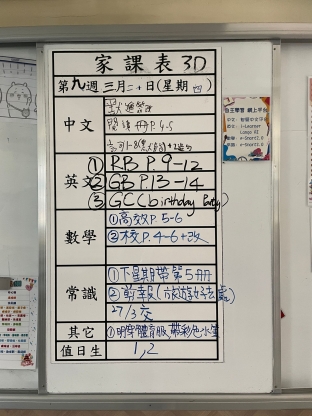 家課表3D
第九週三月二十日(星期四)
中文
閱讀冊P.4-5
英文
① RB P.9-12
② GB P.13-14
③ GCC(birthday Party)
數學
①高效P.5-6
②校P.4-6+改
常識
①下星期帶第5冊
②剪報(旅遊好去處)
27/3交
其它
①明穿體育服,帶彩色水筆
值日生
1,2
自主學習 網上平台